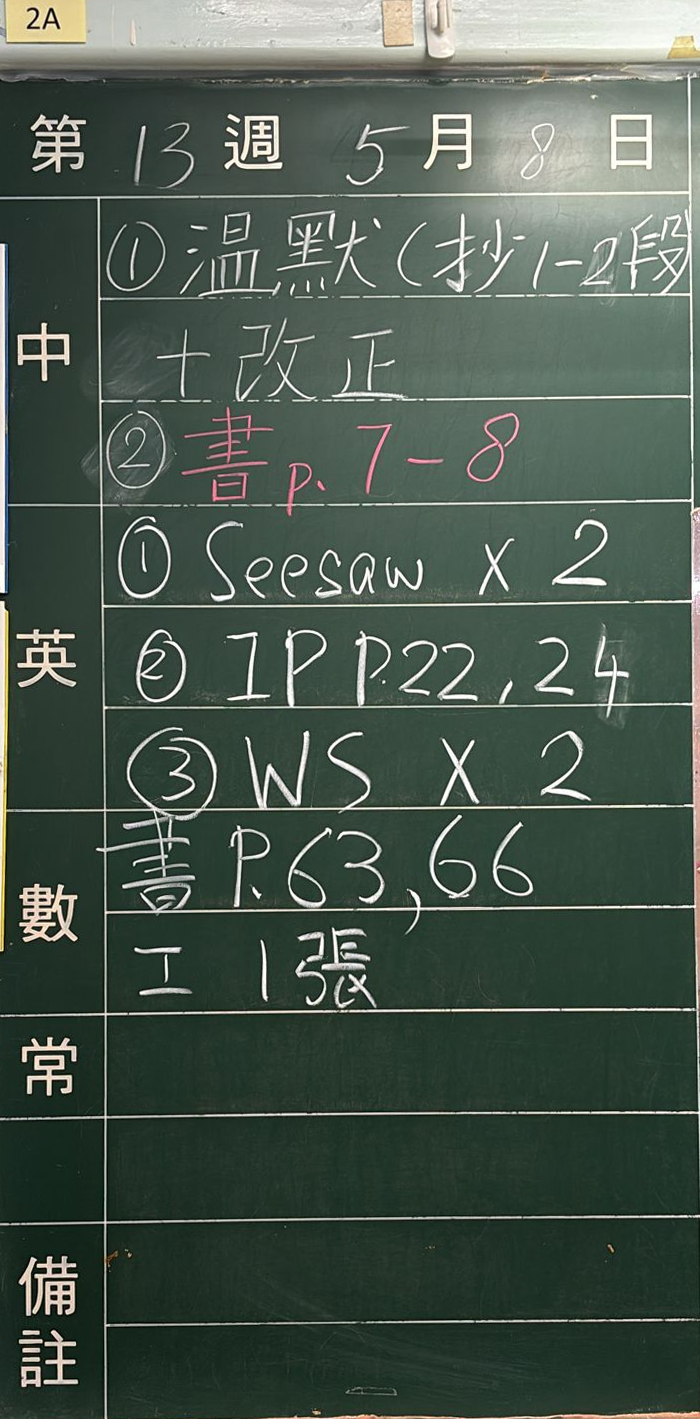 2A
第 13 週 5 月 8 日
中
① 温默(抄1-2段
+改正
② 書p.7-8
英
① Seesaw x 2
② IP P.22,24
③ WS X 2
數
書 P.63,66
工 1張
常
備註